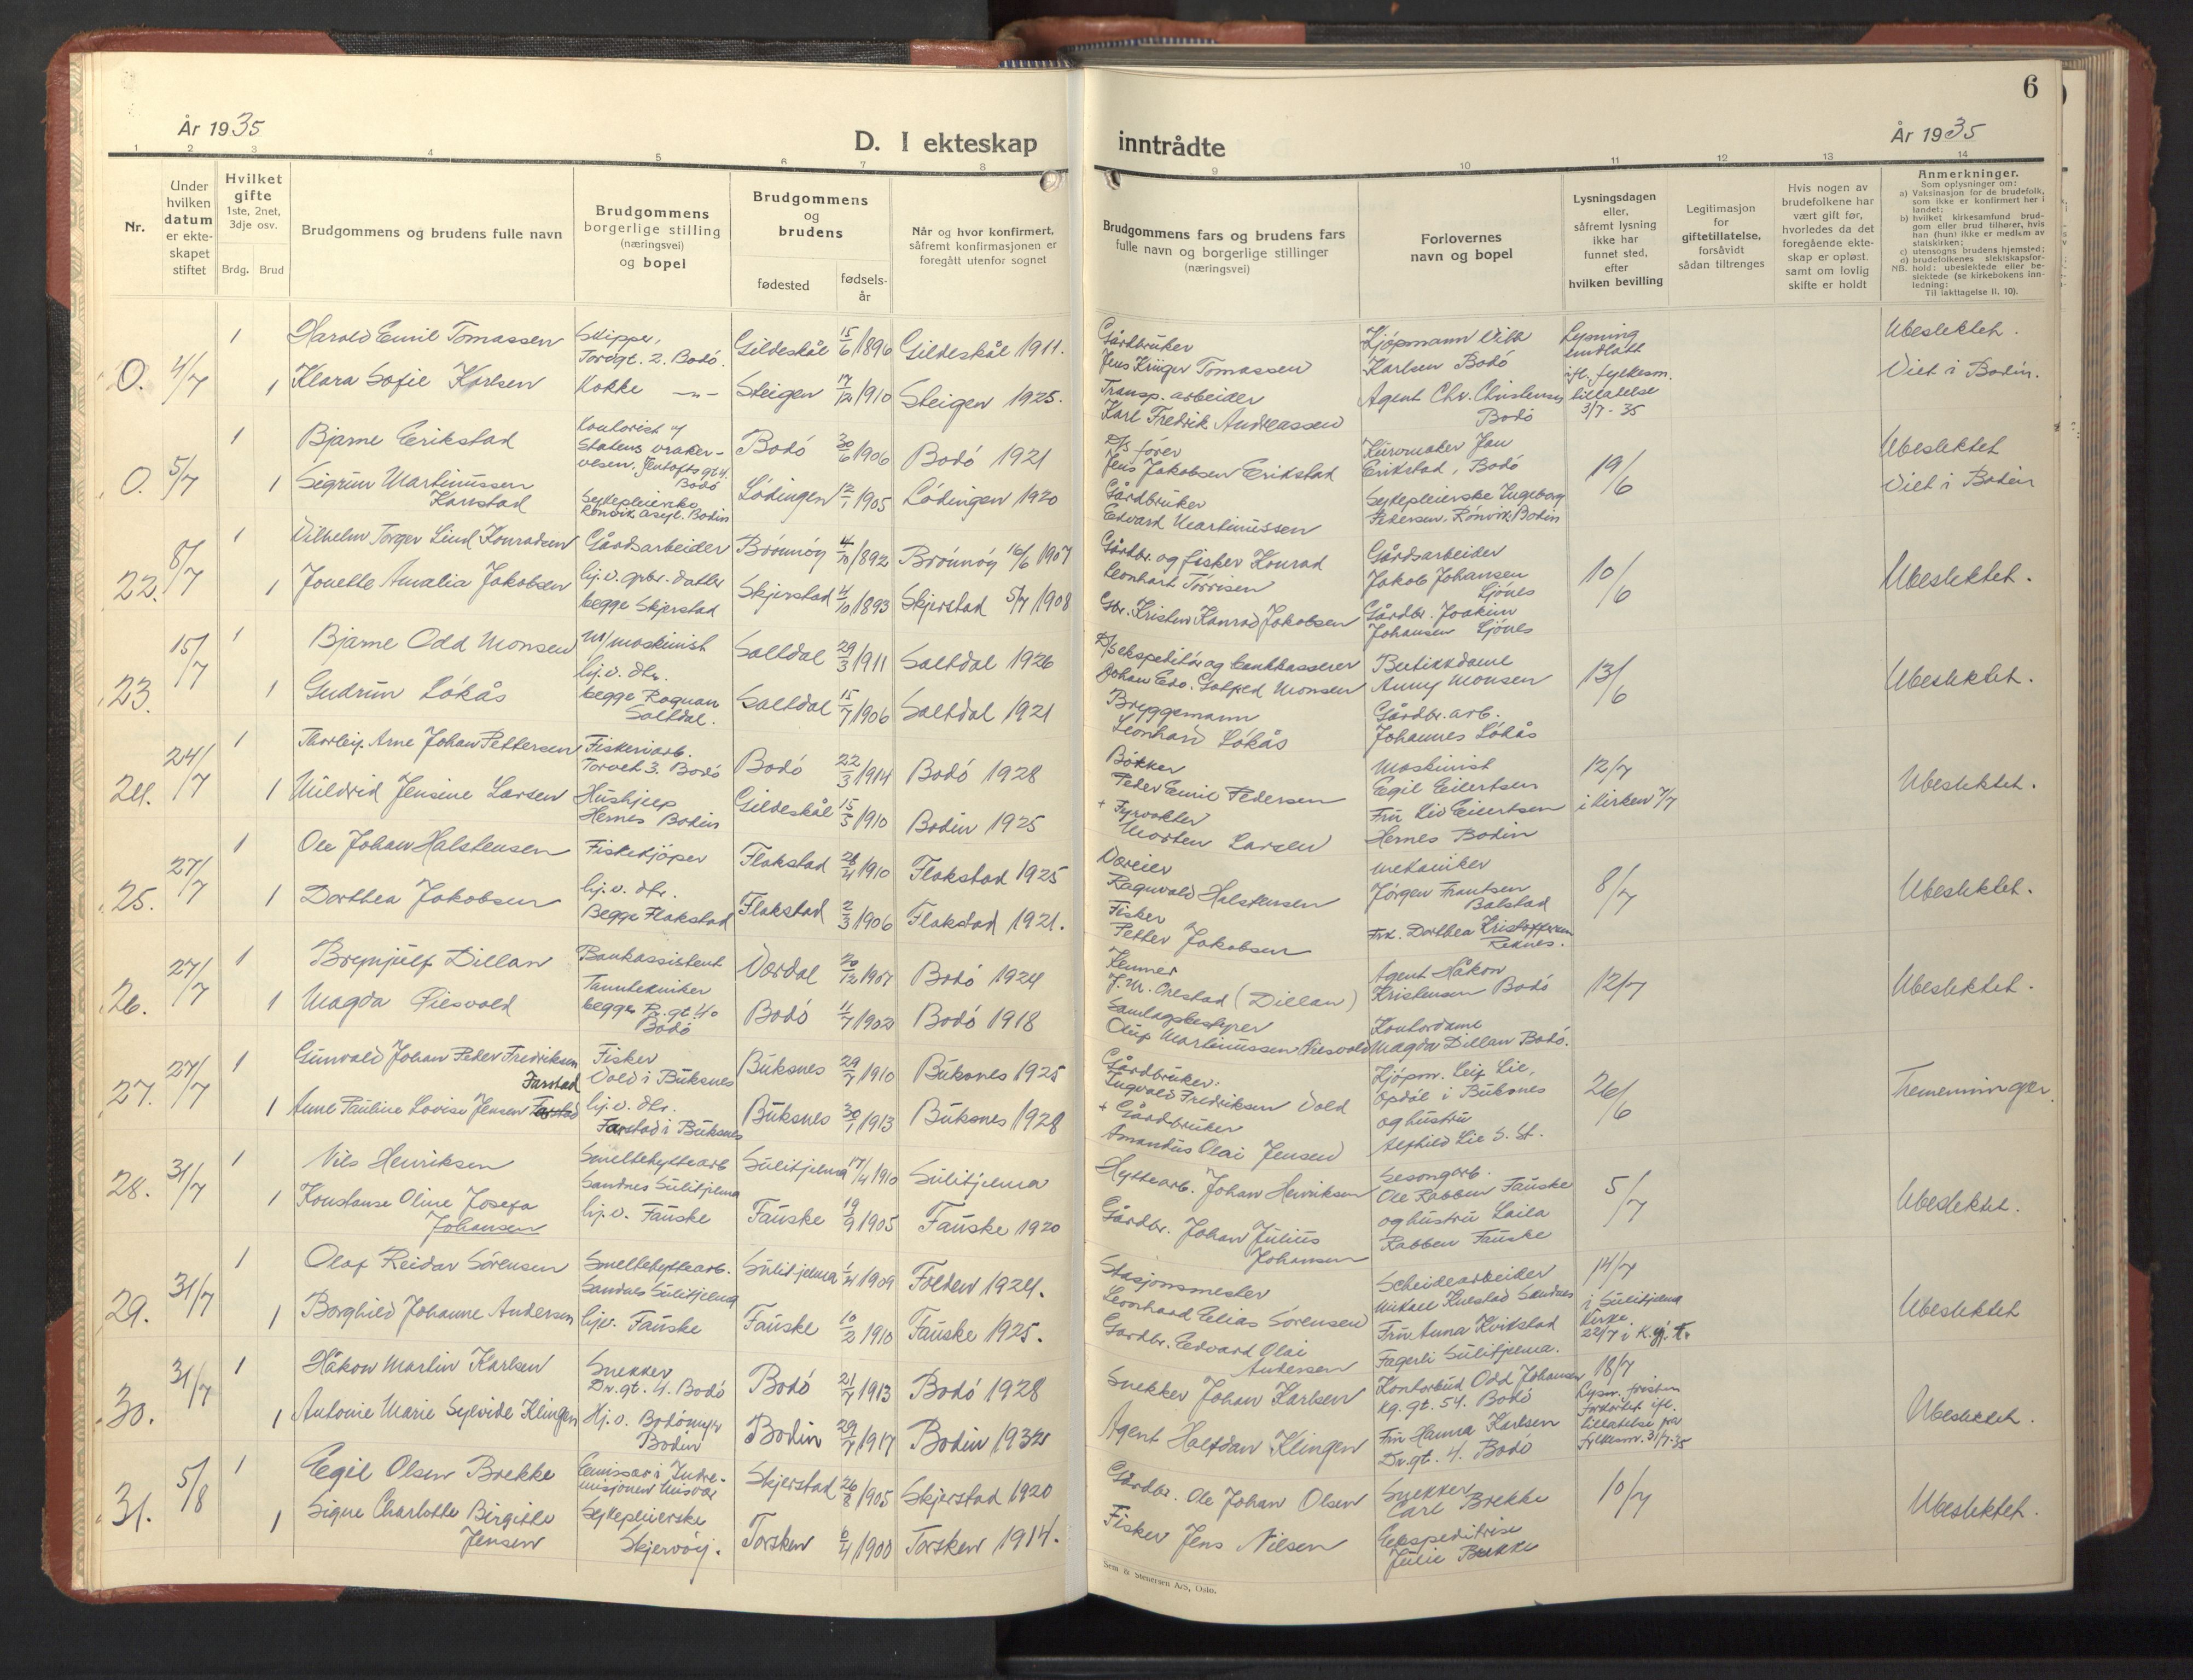 6
År 1935
D. I ekteskap
inntrådte
År 1935
1 2 3 4 5 6 7 8 9 10 11 12 13 14
Nr.
Under hvilken datum er ekteskapet stiftet
Hvilket gifte
1ste, 2net, 3dje osv.
Brdg. Brud
Brudgommens og brudens fulle navn
Brudgommens borgerlige stilling (næringsvei) og bopel
Brudgommens og brudens
fødested
fødsels-år
Når og hvor konfirmert, såfremt konfirmasjonen er foregått utenfor sognet
Brudgommens fars og brudens fars fulle navn og borgerlige stillinger (næringsvei)
Forlovernes navn og bopel
Lysningsdagen eller, såfremt lysning ikke har funnet sted, efter hvilken bevilling
Legitimasjon for giftetillatelse, forsåvidt sådan tiltrenges
Hvis nogen av brudefolkene har vært gift før, hvorledes da det foregående ekteskap er opløst, samt om lovlig skifte er holdt
Anmerkninger.
Som oplysninger om:
a) Vaksinasjon for de brudefolk, som ikke er konfirmert her i landet;
b) hvilket kirkesamfund brudgom eller brud tilhører, hvis han (hun) ikke er medlem av statskirken;
c) utensogns brudens hjemsted;
d) brudefolkenes slektskapsforhold: ubeslektede eller beslektede (se kirkebokens innledning:
NB.
Til iakttagelse II. 10).
0. 4/7
1 Harald Emil Tomassen Skipper, Torvgt. 2. Bodö. Gildeskål 15/6 1896 Gildeskål 1911.
1 Klara Sofie Karlsen Kokke -"- Steigen 17/12 1910 Steigen 1925.
Gårdbruker
Jens Krüger Tomassen
Transp. arbeider
Karl Fredrik Andreassen
Kjöpmann
Karlsen Bodö
Agent Chr. Christensen
Bodö
Lysning
undlatt
ifl. fylkesm.
tillatelse
3/7-35
Ubeslektet.
Viet i Bodin.
0. 5/7
1 Bjarne Erikstad Kontorist v/ Statens vraker-vesen. Jentoftsgt 4. Bodö Bodö 30/6 1906 Bodö 1921
1 Sigrun Martinussen Karstad Sykepleierske Rönvik asyl. Bodin Lödingen 12/1 1905 Lödingen 1920
D/s förer
Jens Jakobsen Erikstad
Gårdbruker
Edvard Martinussen
Jan
Erikstad, Bodö
Sykepleierske Ingeborg
Pedersen, Rönvik, Bodin
19/6
Ubeslektet
Viet i Bodin
22. 8/7
1 Vilhelm Torger Lind Konradsen Gårdsarbeider Brönnöy 4/11 1892 Brönnöy 16/6 1907
1 Jonette Amalia Jakobsen hj.v. grbr. datter begge Skjerstad Skjerstad 4/10 1893 Skjerstad 5/7 1908
Gårdbr. og fisker Konrad
Leonhart Törrisen
Gbr. Kristen Konrad Jakobsen
Gårdsarbeider
Jakob Johansen
Ljönes
Gårdbr. Joakim
Johansen Ljönes
10/6
Ubeslektet.
23. 15/7
1 Bjarne Odd Monsen M/maskinist Saltdal 29/3 1911 Saltdal 1926
1 Gudrun Lökås hj.v. dtr. begge Rognan Saltdal. Saltdal 15/7 1906 Saltdal 1921
D/s ekspeditör og bankkasserer
Johan Edv. Monsen
Bryggemann
Leonhard Lökås
Butikkdame
Anny Monsen
Gårdbr. arb.
Johannes Lökås
13/6
Ubeslektet.
24. 24/7
1 Thorleif Arne Johan Pettersen Fiskeriarb. Torvet 3. Bodö Bodö 22/3 1914 Bodö 1928
1 Mildrid Jensine Larsen Hushjelp Hernes Bodin Gildeskål 15/5 1910 Bodin 1925
Bökker
Peder Emil Pedersen
+ Fyrvokter
Morten Larsen
Maskinist
Egil Eilertsen
Fru Liv Eilertsen
Hernes Bodin
12/7
i kirken 7/7
Ubeslektet.
25. 27/7
1 Ole Johan Halstensen Fiskekjöper Flakstad 28/4 1910 Flakstad 1925
1 Dorthea Jakobsen hj.v. dtr. Begge Flakstad Flakstad 2/3 1906 Flakstad 1921.
Væreier
Ragnvald Halstensen
Fisker
Petter Jakobsen
Mekaniker
Jörgen Frantsen
Balstad
Frk. Dorthea Kristoffersen
Reknes.
8/7
Ubeslektet.
26. 27/7
1 Brynjulf Dillan Bankassistent Værdal 20/12 1907 Bodö 1924
1 Magda Viesvold Tanntekniker begge Pr.gt. 40 Bodö Bodö 4/7 1902 Bodö 1918
(Dillan)
Samlagsbestyrer
Martinussen Viesvold
Agent Håkon
Kristensen Bodö
Kontordame
Magda Dillan Bodö.
12/7
Ubeslektet.
27. 27/7
1 Gunvald Johan Peder Fredriksen Fisker Vold i Buksnes Buksnes 29/7 1910 Buksnes 1925
Farstad
1 Anne Pauline Lovise Jensen Farstad hj.v. dtr. Farstad i Buksnes Buksnes 30/1 1913 Buksnes 1928
Gårdbruker.
Ingvald Fredriksen Vold
+ Gårdbruker
Amandus Olai Jensen
Kjöpm. Leif Lie,
Opdöl i Buksnes
og hustru
Alfhild Lie S. St.
26/6
Tremenninger.
28. 31/7
1 Nils Henriksen Smeltehyttearb Sandnes Sulitjelma Sulitjelma 17/4 1910 Sulitjelma
1 Konstanse Oline Josefa Johansen hj.v. Fauske Fauske 19/9 1905 Fauske 1920
Hyttearb. Johan Henriksen
Gårdbr. Johan Julius
Johansen
Sesongarb.
Ole Rabben Fauske
og hustru Laila
Rabben Fauske
5/7
Ubeslektet.
29. 31/7
1 Olaf Reidar Sörensen Smeltehyttearb. Sandnes Sulitjelma Sulitjelma 1/4 1909 Folden 1924.
1 Borghild Johanne Andersen hjv. Fauske Fauske 10/2 1910 Fauske 1925.
Stasjonsmester
Leonhard Elias Sörensen
Gardbr. Edvard Olai
Andersen
Scheidearbeider
Mikael Knestad Sandnes
Fru Anna Kvikstad
Fagerli Sulitjelma.
14/7
i Sulitjelma
Kirke
22/7 i K.gj. F.
Ubeslektet
30. 31/7
1 Håkon Martin Karlsen Snekker Dr.gt. 4. Bodö Bodö 21/7 1913 Bodö 1928
1 Antonie Marie Sylvide Klingen Hj.v. Bodömyr Bodin Bodin 29/7 1917 Bodin 1932
Snekker Johan Karlsen
Agent Halfdan Klingen
Kontorbud Odd Johansen
Kg. gt. 54. Bodö
Fru Hanna Karlsen
Dr.gt. 4. Bodö
18/7
Lysn. fristen
forkortet ifl.
tillatelse fra
fylkesm. 31/7-35
Ubeslektet.
31. 5/8
1 Egil Olsen Brekke Emissær i Indremisjonen Skjerstad 26/8 1905 Skjerstad 1920
1 Signe Charlotte Birgitte Jensen Sykepleierske Skjervöy. Torsken 6/4 1900 Torsken 1914.
Gårdbr. Ole Johan Olsen
Fisker Jens Nilsen
Snekker
Carl Brekke
Ekspeditrise
Julie Brekke
10/7
Ubeslektet.
Sem & Stenersen A/S, Oslo.